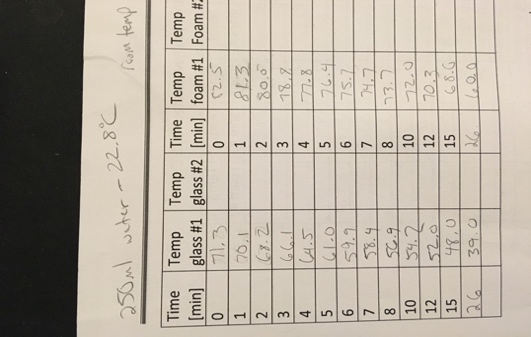 250ml water - 22.8°C room temp
Time Temp Temp Time Temp Temp
[min] glass #1 glass #2 [min] foam #1 Foam #2
0 71.3 0 82.5
1 70.1 1 81.3
2 68.2 2 80.0
3 66.1 3 78.8
4 64.5 4 77.8
5 61.0 5 76.4
6 59.9 6 75.7
7 58.4 7 74.7
8 56.9 8 73.7
10 54.2 10 72.0
12 52.0 12 70.3
15 48.0 15 68.6
26 39.0 26 60.0